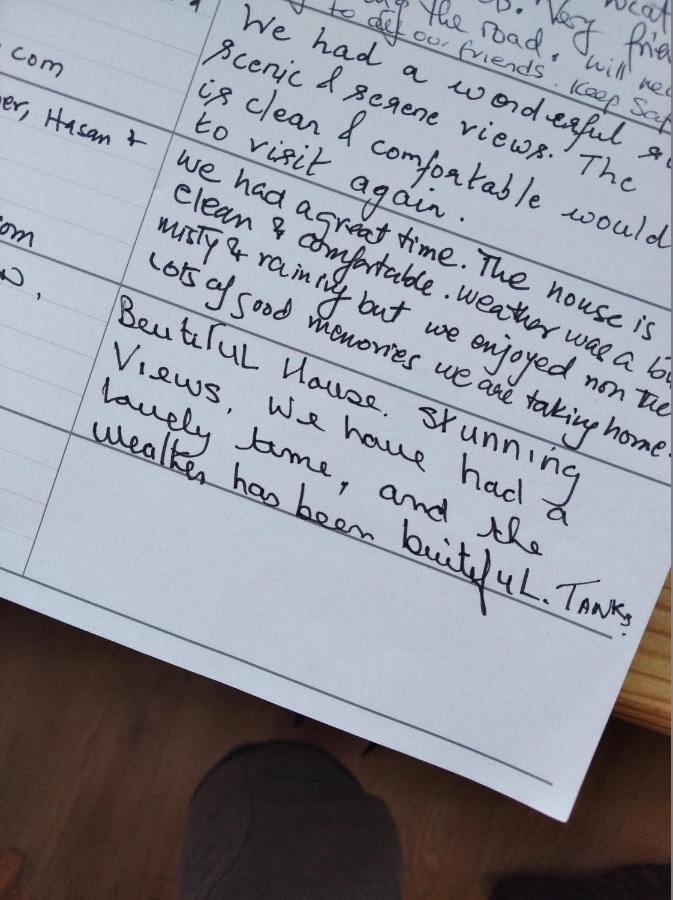 the road. will
to all our friends. Keep Safe
We had a wonderful
scenic & serene views. The
is clean & comfortable would
to visit again.
.com
Hasan +
we had a great time. The house is
clean & comfortable. weather was a
misty & rainiy but we enjoyed non the
Lots of good memories we are taking home.
om
Beutiful House. Stunning
Views. We have had a
lovely time, and the
weather has been buitiful. TANKS.